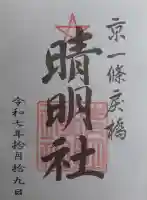 京一條戻橋
晴明社
令和七年拾月拾九日